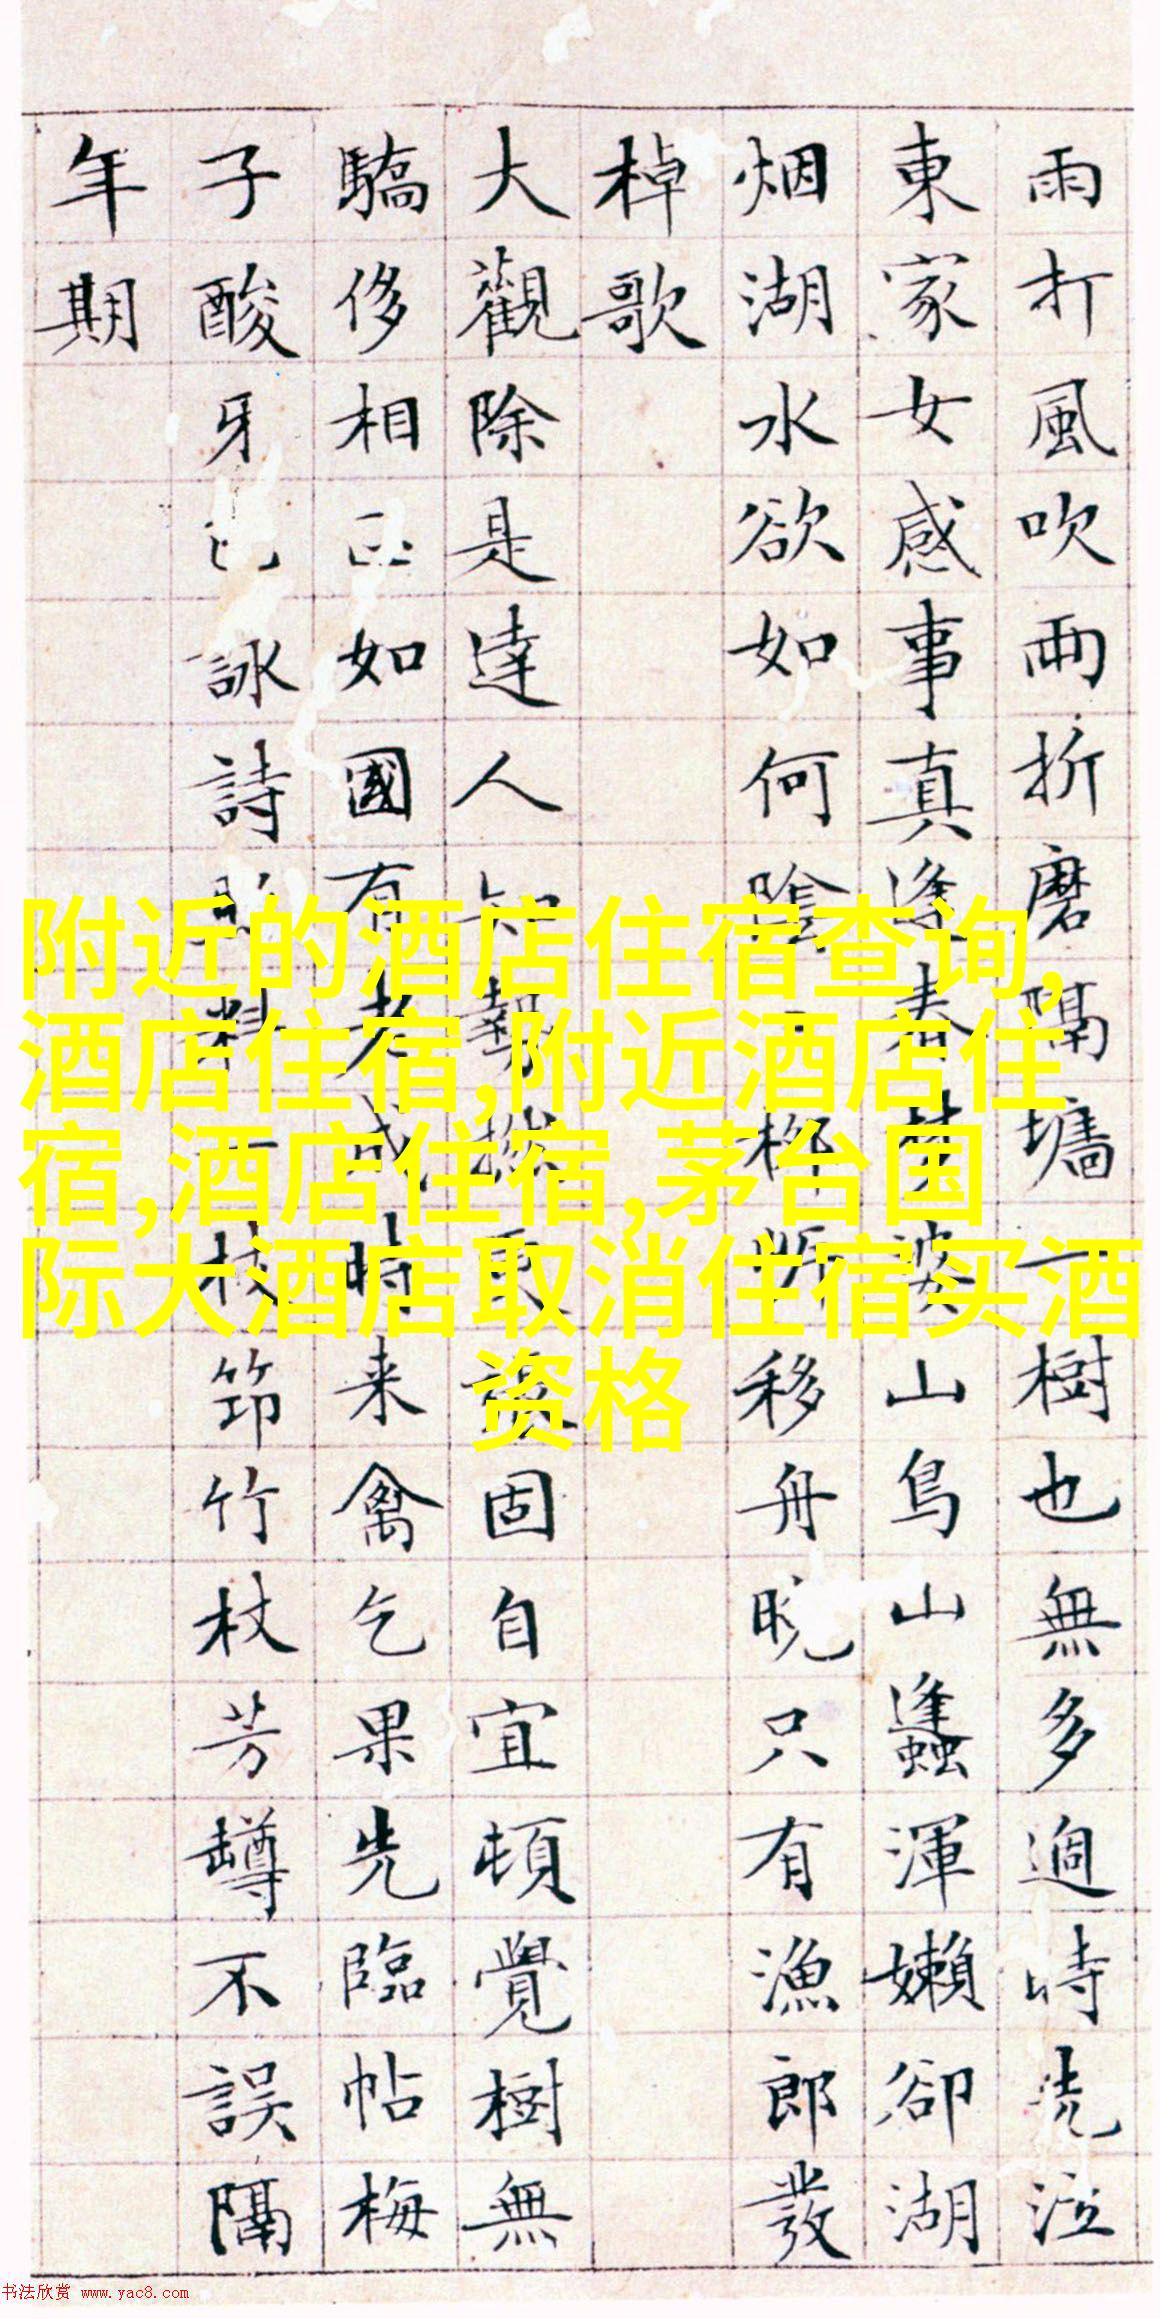 雨打風吹雨折磨隔墻一樹也無多過時洗泣
東家女感事真逢春夢婆山鳥山蠭渾嬾卻湖
烟湖水欲如何陰移舟晚只有漁郎發
棹歌
大觀除是達人知固自宜頓覺樹無
驕侈相如國有老成時来禽乞果先臨帖梅
子酸牙詠詩料一枝筇竹杖芳罇不誤隔
年期
附近的酒店住宿查询,
酒店住宿,附近酒店住
宿,酒店住宿,茅台国
际大酒店取消住宿买酒
资格
书法欣赏 www.yac8.com